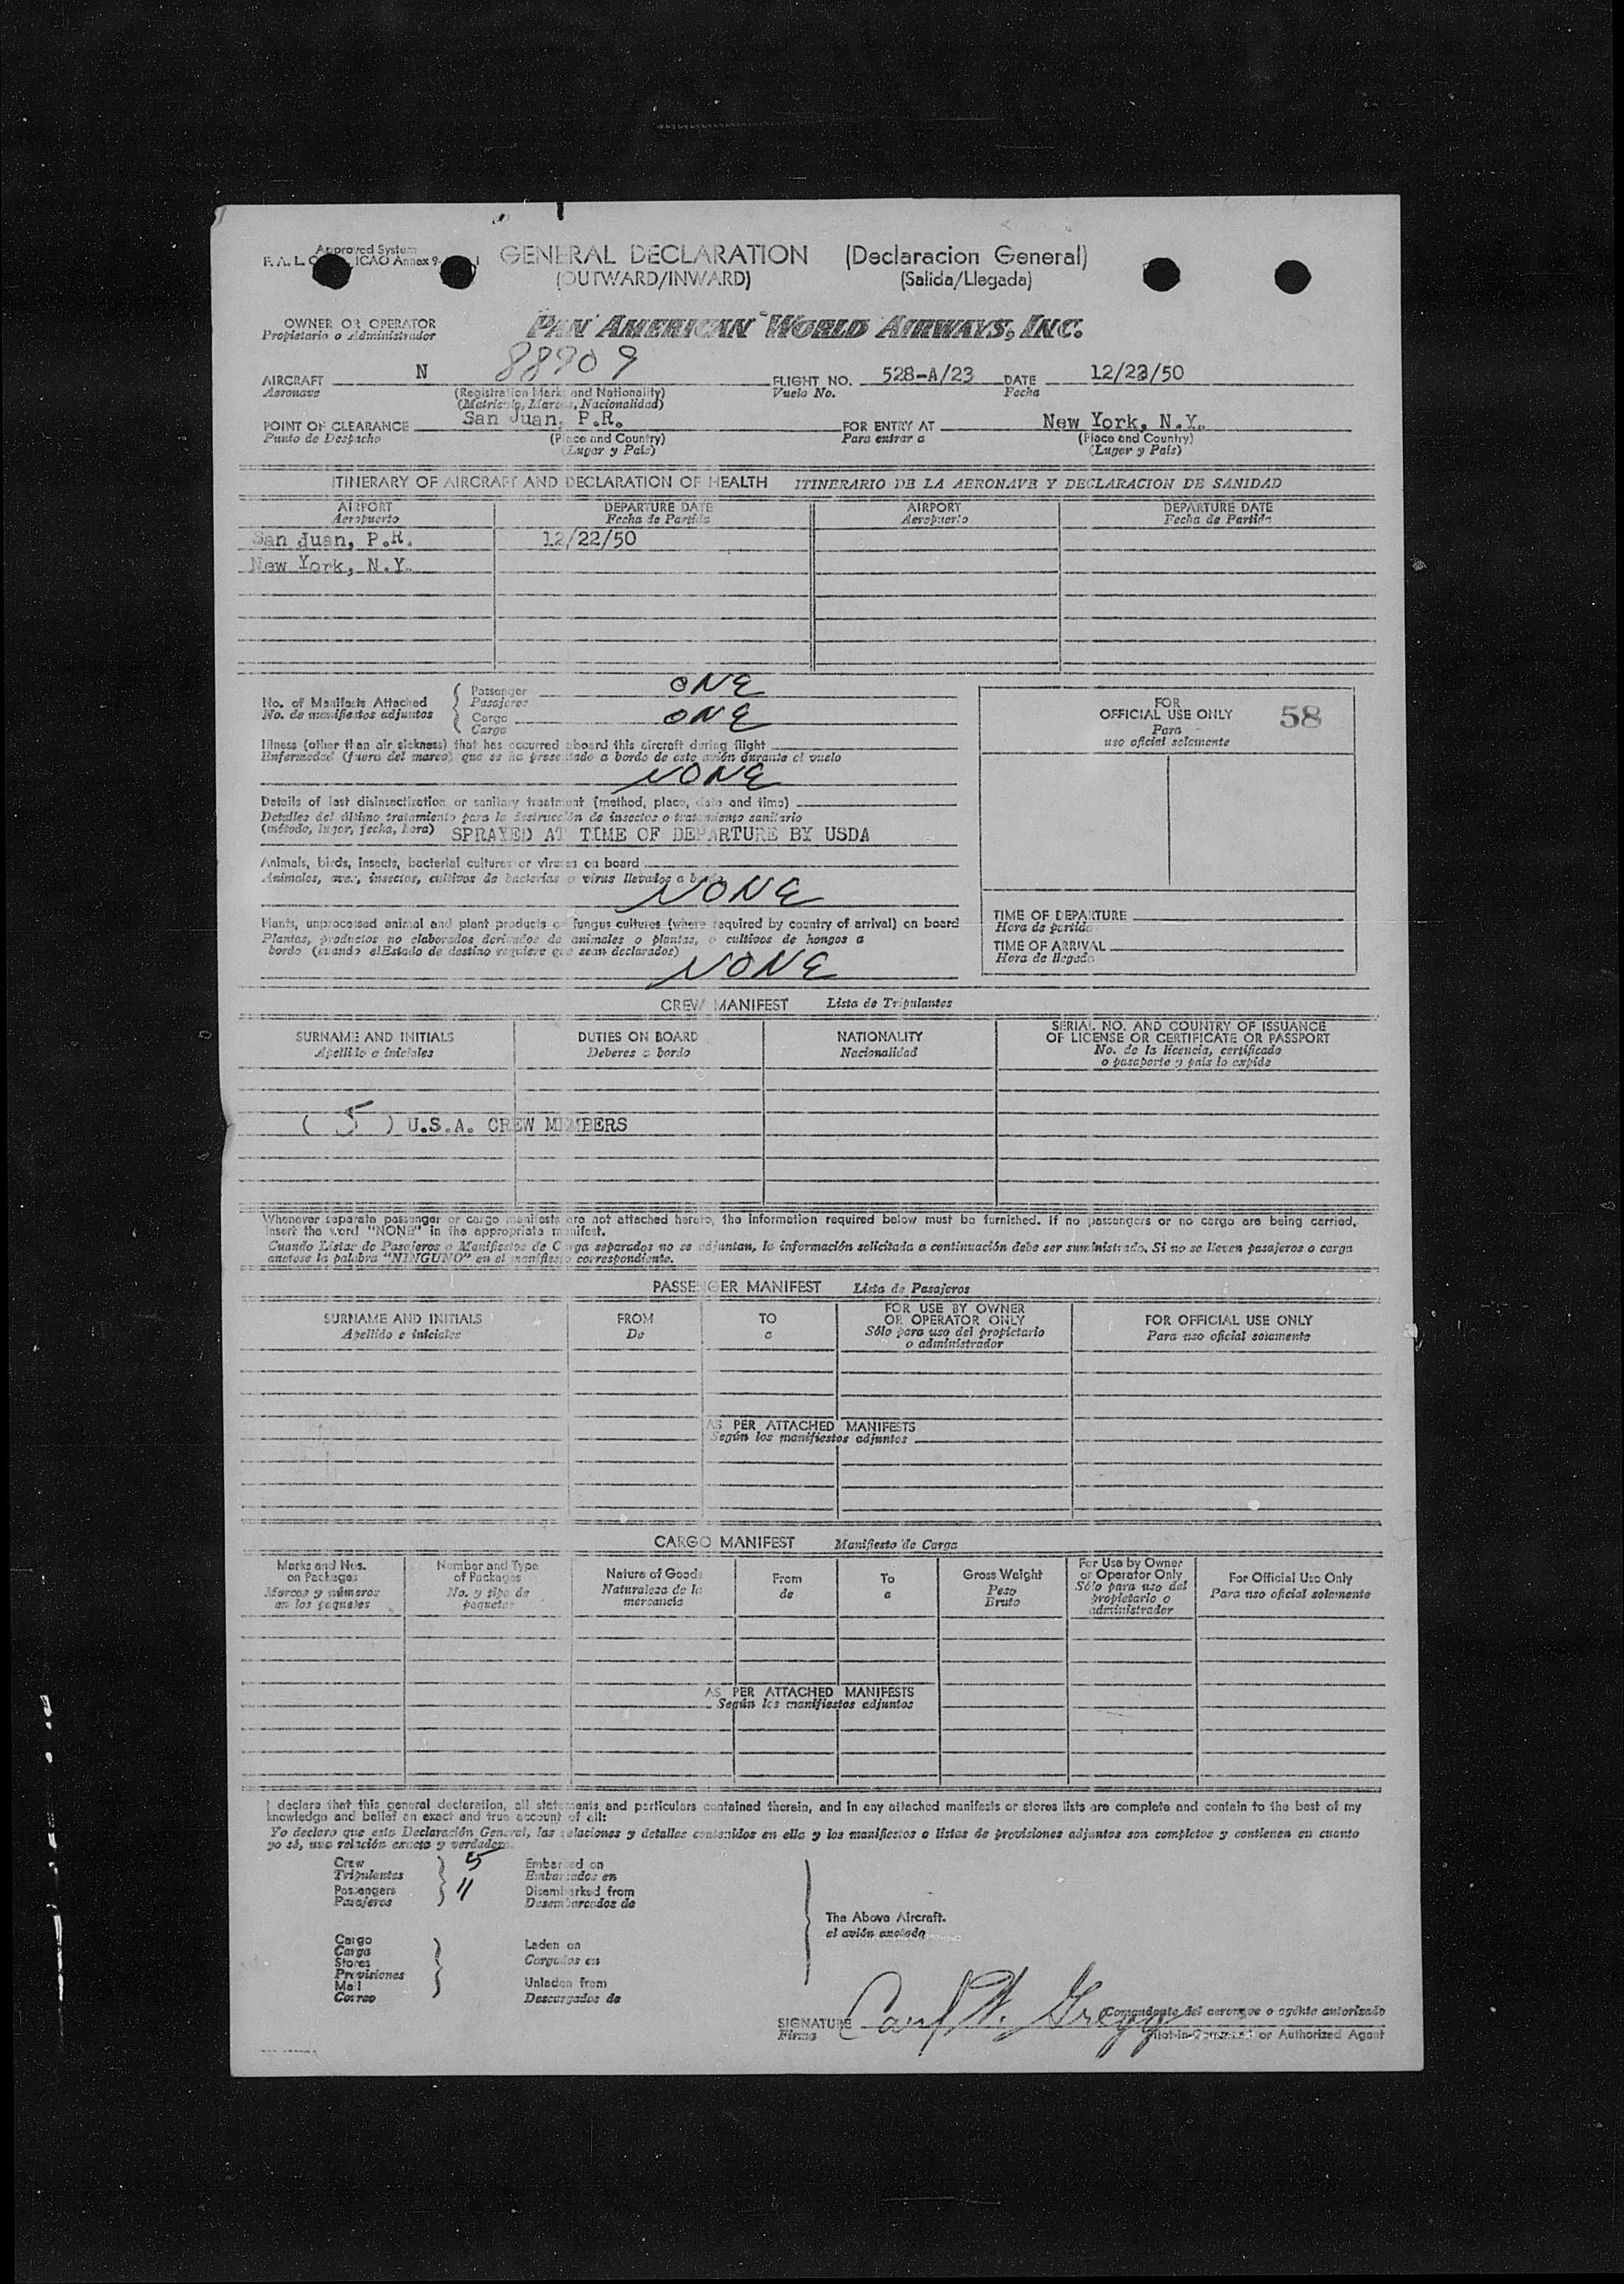 Approved System
GENERAL DECLARATION (Declaracion General)
F. A. L. ICAO Annex 9-
(OUTWARD/INWARD) (Salida/Llegada)
OWNER OR OPERATOR PAN AMERICAN WORLD AIRWAYS, INC.
Propietario o Administrador
AIRCRAFT N 88909 FLIGHT NO. 528-A/23 DATE 12/22/50
Aeronave (Registration Marks and Nationality) Vuelo No. Fecha
(Matricula, Marcas, Nacionalidad)
POINT OF CLEARANCE San Juan, P.R. FOR ENTRY AT New York, N.Y.
Punto de Despacho (Place and Country) Para entrar a (Place and Country)
(Lugar y Pais) (Lugar y Pais)
ITINERARY OF AIRCRAFT AND DECLARATION OF HEALTH ITINERARIO DE LA AERONAVE Y DECLARACION DE SANIDAD
AIRPORT DEPARTURE DATE AIRPORT DEPARTURE DATE
Aeropuerto Fecha de Partida Aeropuerto Fecha de Partida
San Juan, P.R. 12/22/50
New York, N.Y.
No. of Manifests Attached Passenger ONE
No. de manifiestos adjuntos Pasajeros
Cargo ONE
Carga
FOR
OFFICIAL USE ONLY 58
Para
uso oficial solamente
Illness (other than air sickness) that has occurred aboard this aircraft during flight
Enfermedad (fuera del mareo) que se ha presentado a bordo de este avión durante el vuelo
NONE
Details of last disinsectization or sanitary treatment (method, place, date and time)
Detalles del último tratamiento para la destrucción de insectos o tratamiento sanitario
(método, lugar, fecha, hora) SPRAYED AT TIME OF DEPARTURE BY USDA
Animals, birds, insects, bacterial cultures or viruses on board
Animales, aves, insectos, cultivos de bacterias o virus llevados a bordo
NONE
Plants, unprocessed animal and plant products or fungus cultures (where required by country of arrival) on board
Plantas, productos no elaborados derivados de animales o plantas, o cultivos de hongos a
bordo (cuando elEstado de destino requiere que sean declarados)
NONE
TIME OF DEPARTURE
Hora de partida
TIME OF ARRIVAL
Hora de llegada
CREW MANIFEST Lista de Tripulantes
SURNAME AND INITIALS DUTIES ON BOARD NATIONALITY SERIAL NO. AND COUNTRY OF ISSUANCE
OF LICENSE OR CERTIFICATE OR PASSPORT
Apellido e iniciales Deberes a bordo Nacionalidad No. de la licencia, certificado
o pasaporte y pais lo expide
( 5 ) U.S.A. CREW MEMBERS
Whenever separate passenger or cargo manifests are not attached hereto, the information required below must be furnished. If no passengers or no cargo are being carried,
insert the word "NONE" in the appropriate manifest.
Cuando Listas de Pasajeros o Manifiestos de Carga separados no se adjuntan, la información solicitada a continuación debe ser suministrado. Si no se lleven pasajeros o carga
anotese la palabra "NINGUNO" en el manifiesto correspondiente.
PASSENGER MANIFEST Lista de Pasajeros
SURNAME AND INITIALS FROM TO FOR USE BY OWNER OR OPERATOR ONLY FOR OFFICIAL USE ONLY
Apellido e iniciales De a Sólo para uso del propietario o administrador Para uso oficial solamente
AS PER ATTACHED MANIFESTS
Según los manifiestos adjuntos
CARGO MANIFEST Manifiesto de Carga
Marks and Nos. on Packages Number and Type of Packages Nature of Goods From To Gross Weight For Use by Owner or Operator Only For Official Use Only
Marcas y números en los paquetes No. y tipo de paquetes Naturaleza de la mercancia de a Peso Bruto Sólo para uso del propietario o administrador Para uso oficial solamente
AS PER ATTACHED MANIFESTS
Según los manifiestos adjuntos
I declare that this general declaration, all statements and particulars contained therein, and in any attached manifests or stores lists are complete and contain to the best of my
knowledge and belief an exact and true account of all:
Yo declaro que esta Declaración General, las relaciones y detalles contenidos en ella y los manifiestos o listas de provisiones adjuntos son completos y contienen en cuanto
yo sé, una relación exacta y verdadera.
Crew 5 Embarked on
Tripulantes Embarcados en
Passengers 11 Disembarked from
Pasajeros Desembarcados de
The Above Aircraft.
el avión anotado
Cargo Laden on
Carga Cargados en
Stores
Provisiones
Mail Unladen from
Correo Descargados de
Comandante del aeronave o agente autorizado
SIGNATURE Carl W. Gregg
Firma Pilot-in-Command or Authorized Agent